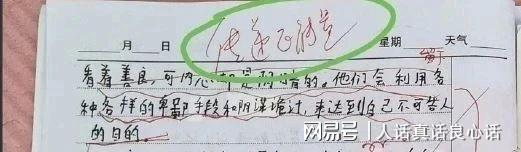 传递正能量
月 日 星期 天气
看着善良，可内心却是阴暗的。他们会利用各
种各样的卑鄙手段和阴谋诡计，来达到自己不可告人
的目的。
网易号 | 人话真话良心话